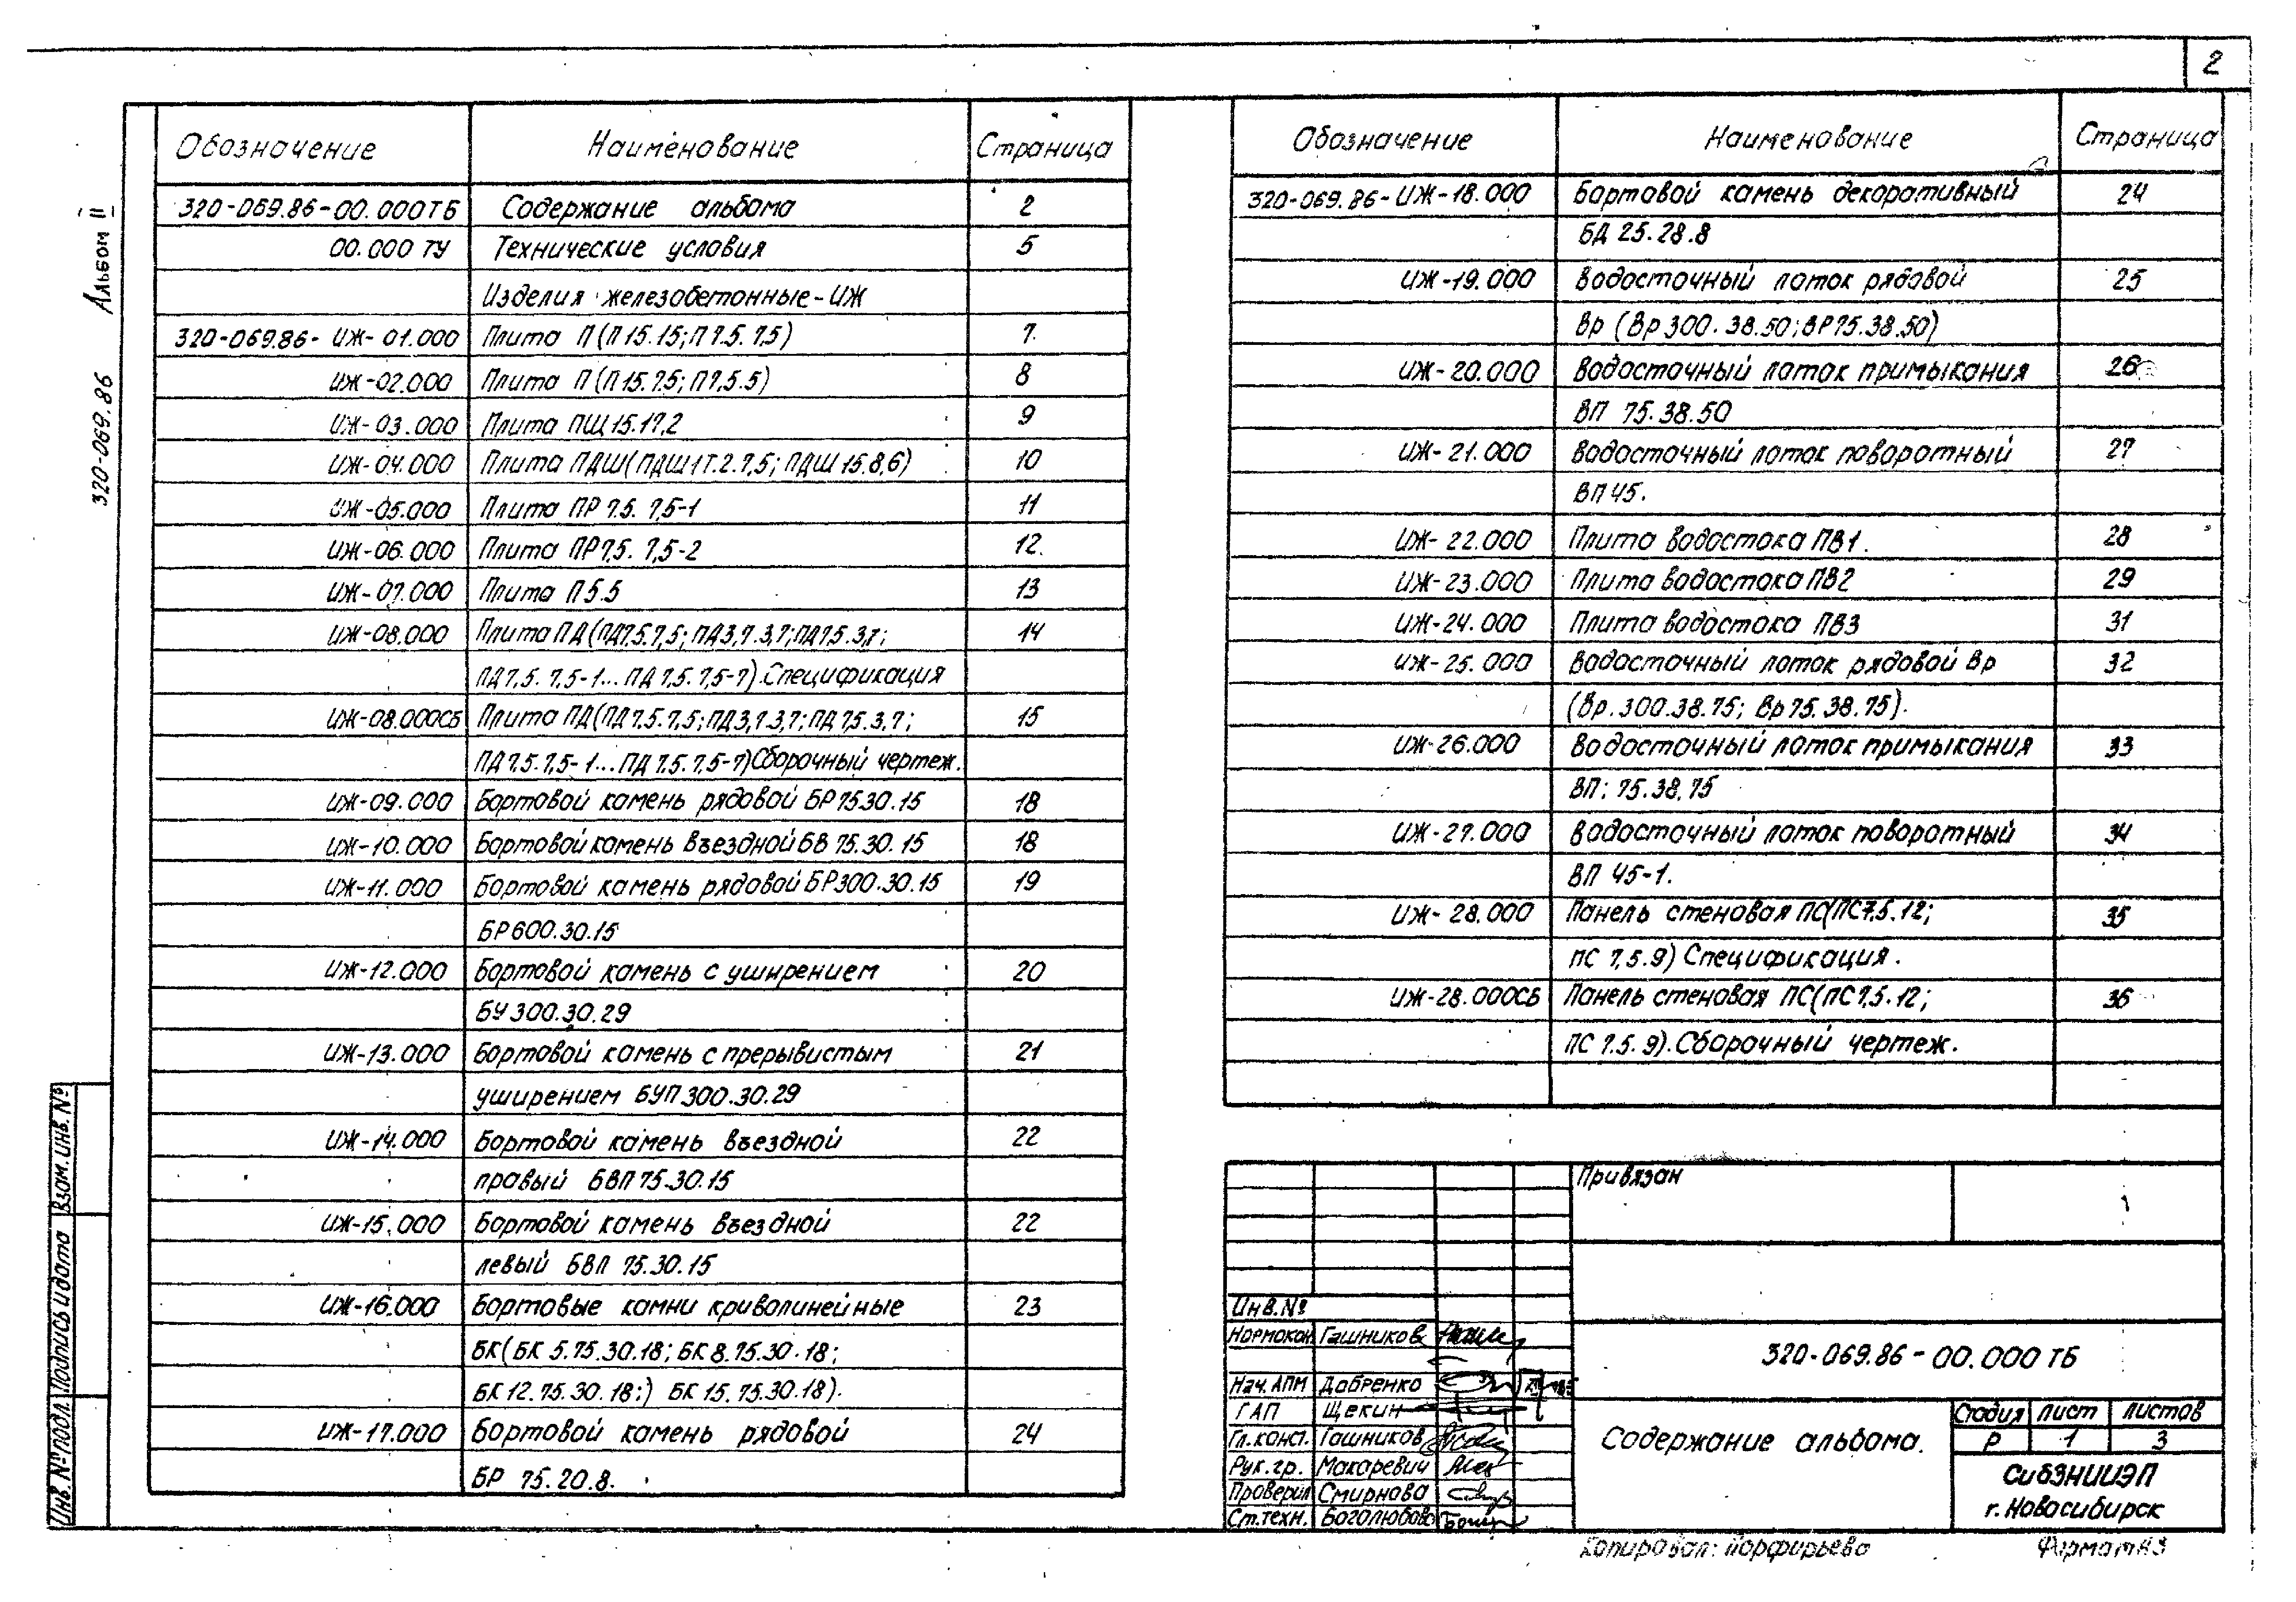 2
320-069.86 Альбом II
Обозначение Наименование Страница
320-069.86-00.000ТБ Содержание альбома 2
00.000 ТУ Технические условия 5
Изделия железобетонные-ИЖ
320-069.86- ИЖ-01.000 Плита П (П 15.15; П 7.5. 7,5) 7
ИЖ-02.000 Плита П (П 15.7.5; П 7,5.5) 8
ИЖ-03.000 Плита ПЩ 15.17,2 9
ИЖ-04.000 Плита ПДШ(ПДШ17.2.7,5; ПДШ 15.8,6) 10
ИЖ-05.000 Плита ПР 7.5. 7,5-1 11
ИЖ-06.000 Плита ПР7,5. 7,5-2 12.
ИЖ-07.000 Плита П5.5 13
ИЖ-08.000 Плита ПД(ПД7.5.7,5; ПД3,7.3,7; ПД7.5.3,7; 14
ПД7,5. 7,5-1... ПД 7.5. 7,5-7).Спецификация
ИЖ-08.000СБ Плита ПД(ПД 7.5.7,5; ПД3,7 3,7; ПД 7,5.3,7; 15
ПД 7.5.7,5-1...ПД 7.5. 7,5-7)Сборочный чертеж.
ИЖ-09.000 Бортовой камень рядовой БР 75 30.15 18
ИЖ-10.000 Бортовой камень въездной БВ 75.30.15 18
ИЖ-11.000 Бортовой камень рядовой БР300.30.15 19
БР600.30.15
ИЖ-12.000 Бортовой камень с уширением 20
БУ300.30.29
ИЖ-13.000 Бортовой камень с прерывистым 21
уширением БУП300.30.29
ИЖ-14.000 Бортовой камень въездной 22
правый БВП 75.30.15
ИЖ-15.000 Бортовой камень въездной 22
левый БВЛ 75.30.15
ИЖ-16.000 Бортовые камни криволинейные 23
БК(БК 5.75.30.18; БК 8.75.30.18;
БК 12.75.30.18;) БК 15.75.30.18).
ИЖ-17.000 Бортовой камень рядовой 24
БР 75.20.8.
Обозначение Наименование Страница
320-069.86-ИЖ-18.000 Бортовой камень декоративный 24
БД 25.28.8
ИЖ-19.000 Водосточный лоток рядовой 25
Вр (Вр300.38.50; ВР75.38.50)
ИЖ-20.000 Водосточный лоток примыкания 26
ВП 75.38.50
ИЖ-21.000 Водосточный лоток поворотный 27
ВП 45.
ИЖ-22.000 Плита водостока ПВ1. 28
ИЖ-23.000 Плита водостока ПВ2 29
ИЖ-24.000 Плита водостока ПВ3 31
ИЖ-25.000 Водосточный лоток рядовой Вр 32
(Вр.300.38.75; Вр75.38.75).
ИЖ-26.000 Водосточный лоток примыкания 33
ВП: 75.38.75
ИЖ-27.000 Водосточный лоток поворотный 34
ВП 45-1.
ИЖ-28.000 Панель стеновая ПС(ПС7,5.12; 35
ПС 7,5.9) Спецификация.
ИЖ-28.000СБ Панель стеновая ПС(ПС 7,5.12; 36
ПС 7.5.9).Сборочный чертеж.
Привязан
Инв.№
Нормокон. Гашников
Нач.АПМ Добренко
ГАП Щекин
Гл.конст. Гашников
Рук.гр. Макаревич
Проверил Смирнова
Ст.техн. Боголюбова
320-069.86-00.000 ТБ
Содержание альбома.
Стадия Лист Листов
Р 1 3
СибЗНИИЭП
г.Новосибирск
Инв.№подл. Подпись и дата Взам.инв.№
Копировал: Порфирьева Формат А3